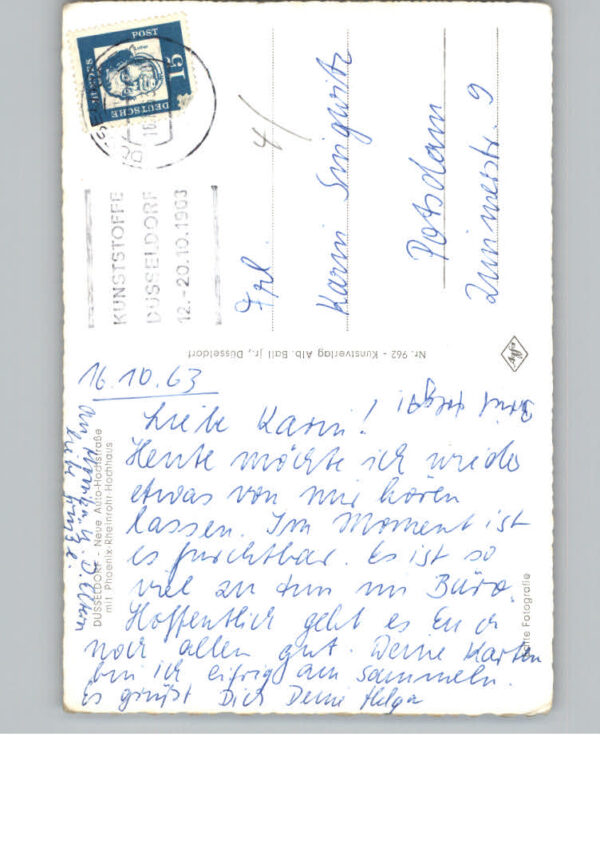 DEUTSCHE
POST
15
KUNSTSTOFFE
DÜSSELDORF
12.-20.10.1963
Frl.
Karin
Potsdam
9
Nr. 962 - Kunstverlag Alb. Ball jr., Düsseldorf
16.10.63
Liebe Karin!
Heute möchte ich wieder
etwas von mir hören
lassen. Im Moment ist
es furchtbar. Es ist so
viel zu tun im Büro.
Hoffentlich geht es Euch
noch allen gut. Deine Karten
bin ich eifrig am sammeln.
Es grüßt Dich Deine Helga
DÜSSELDORF - Neue Auto-Hochstraße
mit Phoenix-Rheinrohr-Hochhaus
Fotografie